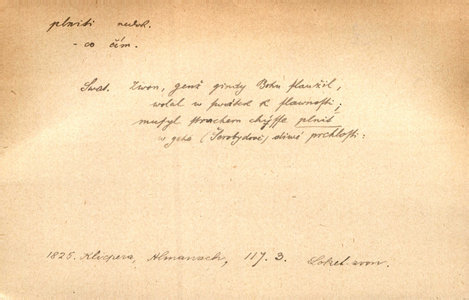 plniti nedok.
- co čím.
Swat. Zwon, genž gindy Bohu slaužil,
wolal w swátek k slawnosti;
musyl strachem chýsse plnit
w geho (Šerobydově) diwé prchlosti:
1825. Klicpera, Almanach, 117. 3. Loket zwon.